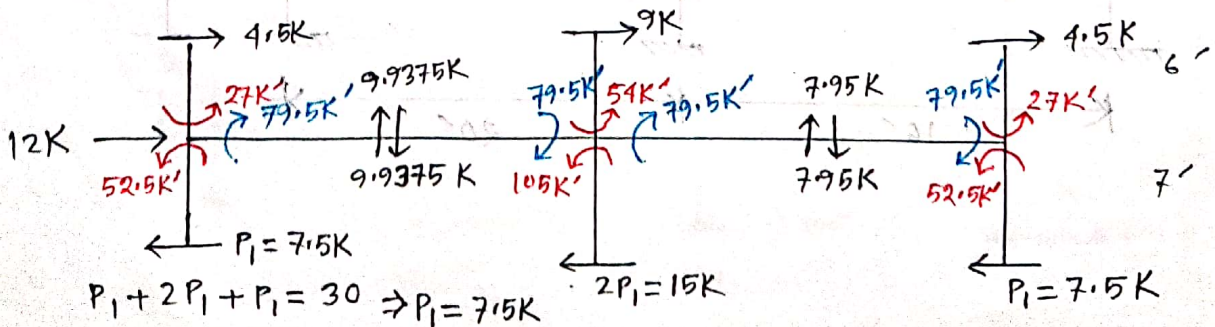 4.5K 9K 4.5K
6'
27K' 79.5K' 9.9375K 79.5K' 54K' 79.5K' 7.95K 79.5K' 27K'
12K
52.5K' 9.9375 K 105K' 7.95K 52.5K' 7'
P₁ = 7.5K 2P₁ = 15K P₁ = 7.5K
P₁ + 2P₁ + P₁ = 30 ⇒ P₁ = 7.5K